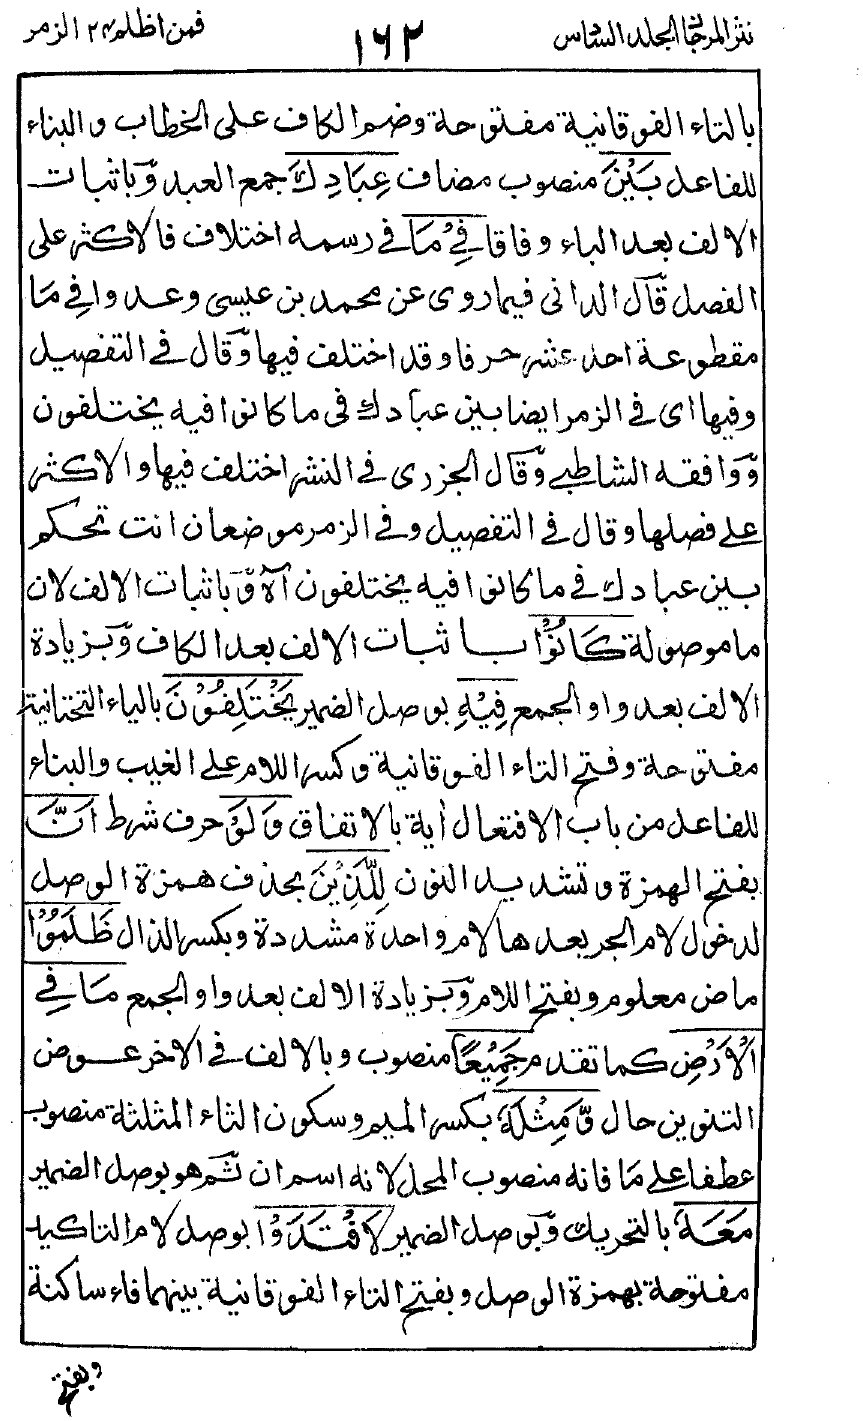 نثر المرجان الجلد السادس
١٦٢
فمن اظلم ٢٤ الزمر
بالتاء الفوقانية مفتوحة وضم الكاف على الخطاب والبناء
للفاعل بَيْنَ منصوب مضاف عِبَادِكَ جمع العبد وّباثبات
الالف بعد الباء وفاقا فِيْ مَا في رسمه اختلاف فالاكثر على
الفصل قّال الداني فيما روى عن محمد بن عيسى وعدوا في مَا
مقطوعة احد عشر حرفا وقد اختلف فيها وّقال في التفصيل
وفيها اى في الزمر ايضا بين عبادك في ما كانوا فيه يختلفون
وّوافقه الشاطبي وّقال الجزرى في النشر اختلف فيها والاكثر
على فصلها وقال في التفصيل وفي الزمر موضعان انت تحكم
بين عبادك في ما كانوا فيه يختلفون آه وّباثبات الالف لان
ما موصولة كَانُوْا باثبات الالف بعد الكاف وّبزيادة
الالف بعد واو الجمع فِيْهِ بوصل الضمير يَخْتَلِفُوْنَ بالياء التحتانية
مفتوحة وفتح التاء الفوقانية وكسر اللام على الغيب والبناء
للفاعل من باب الافتعال اٰية بالاتفاق وَلَوْ حرف شرط اَنَّ
بفتح الهمزة وتشديد النون لِلَّذِيْنَ بحذف همزة الوصل
لدخول لام الجر بعدها لام واحدة مشددة وبكسر الذال ظَلَمُوْا
ماض معلوم وبفتح اللام وّبزيادة الالف بعد واو الجمع مَا فِي
الْاَرْضِ كما تقدم جَمِيْعًا منصوب وبالالف في الاخر عوض
التنوين حال وَّمِثْلَهٗ بكسر الميم وسكون الثاء المثلثة منصوب
عطفا على مَا فانه منصوب المحل لانه اسم ان ثّم هو بوصل الضمير
مَعَهٗ بالتحريك وّبوصل الضمير لَافْتَدَوْا بوصل لام التاكيد
مفتوحة بهمزة الوصل وبفتح التاء الفوقانية بينهما فاء ساكنة
وبفتح